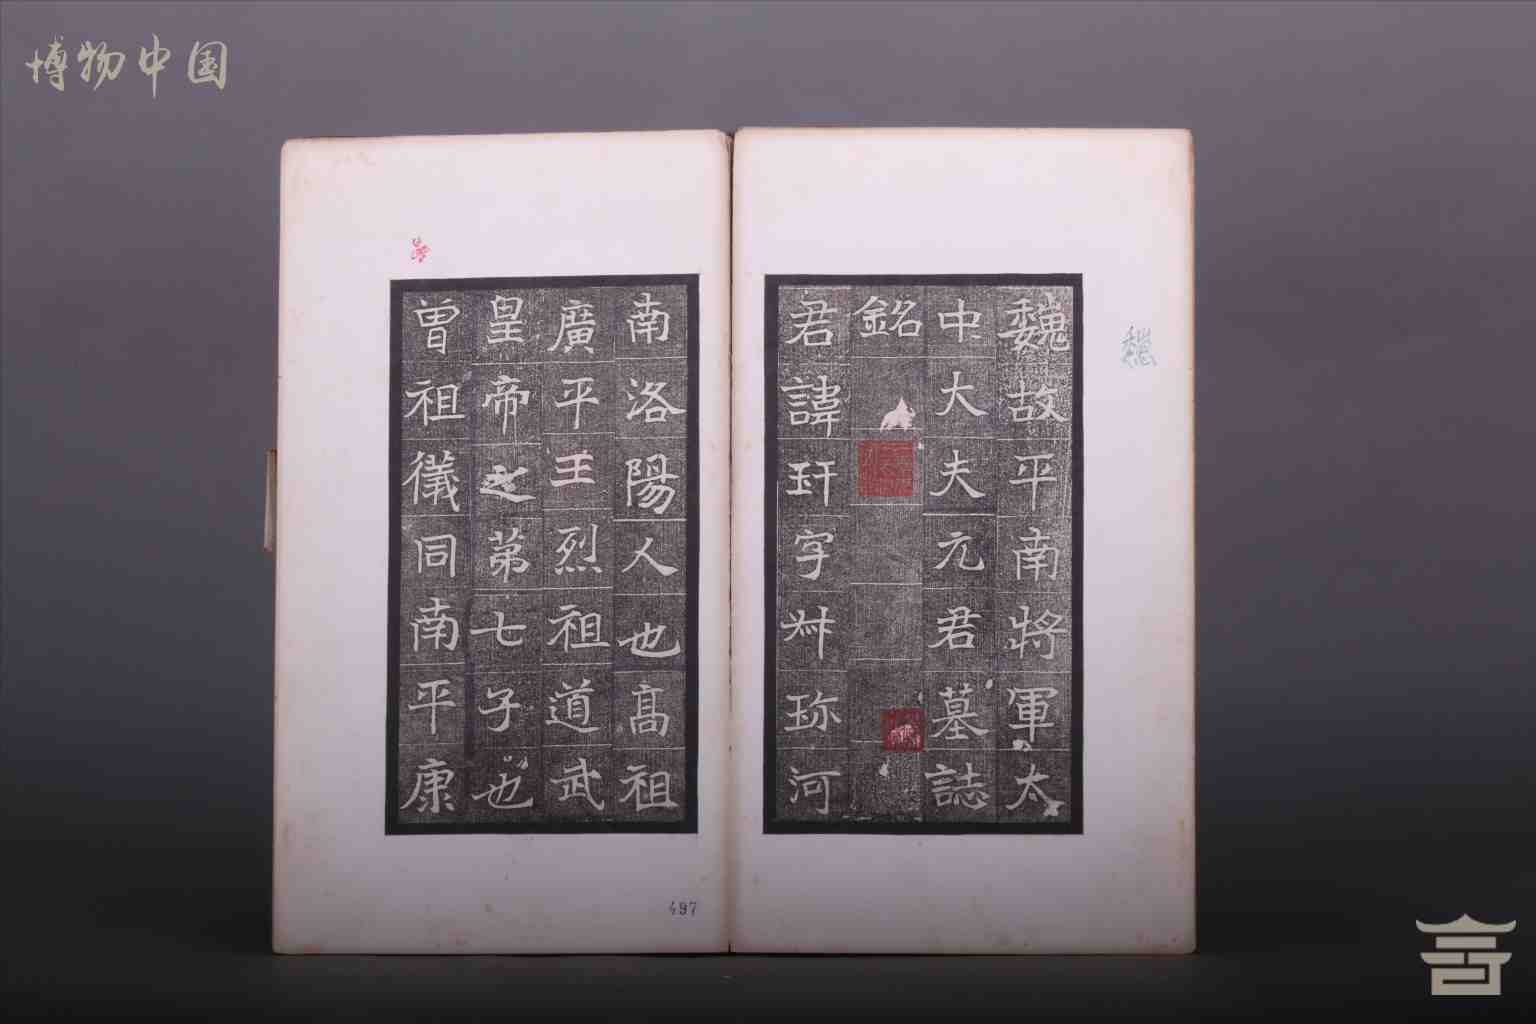 博物中国
魏
魏故平南將軍太
中大夫元君墓誌
銘
君諱玕字叔珎河
南洛陽人也高祖
廣平王烈祖道武
皇帝之苐七子也
曾祖儀同南平康
497